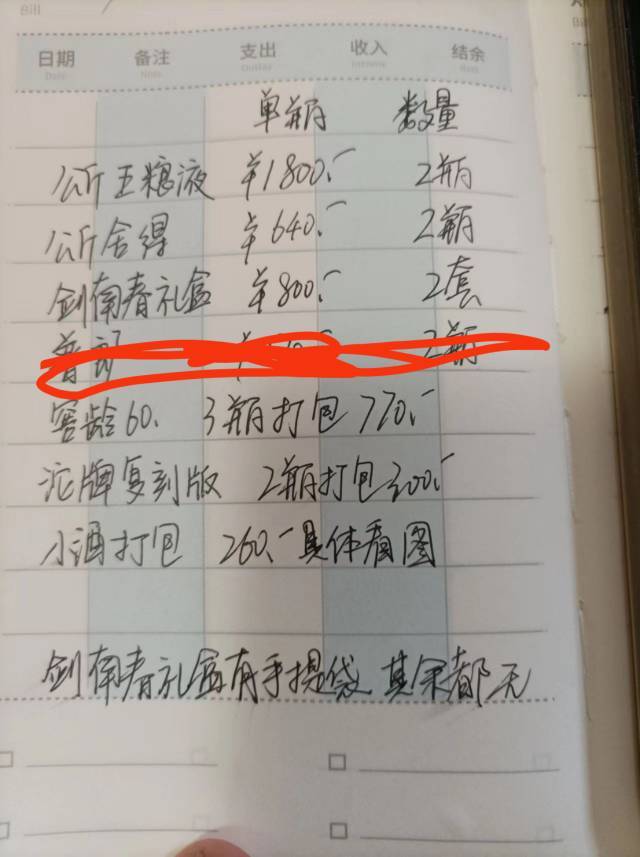 Bill
日期 备注 支出 收入 结余
Date Note
单瓶 数量
公斤五粮液 ¥1800.- 2瓶
公斤舍得 ¥640.- 2瓶
剑南春礼盒 ¥800.- 2套
2瓶
窖龄60. 3瓶打包 770.-
沱牌复刻版 2瓶打包300.-
小酒打包 260.- 具体看图
剑南春礼盒有手提袋 其余都无